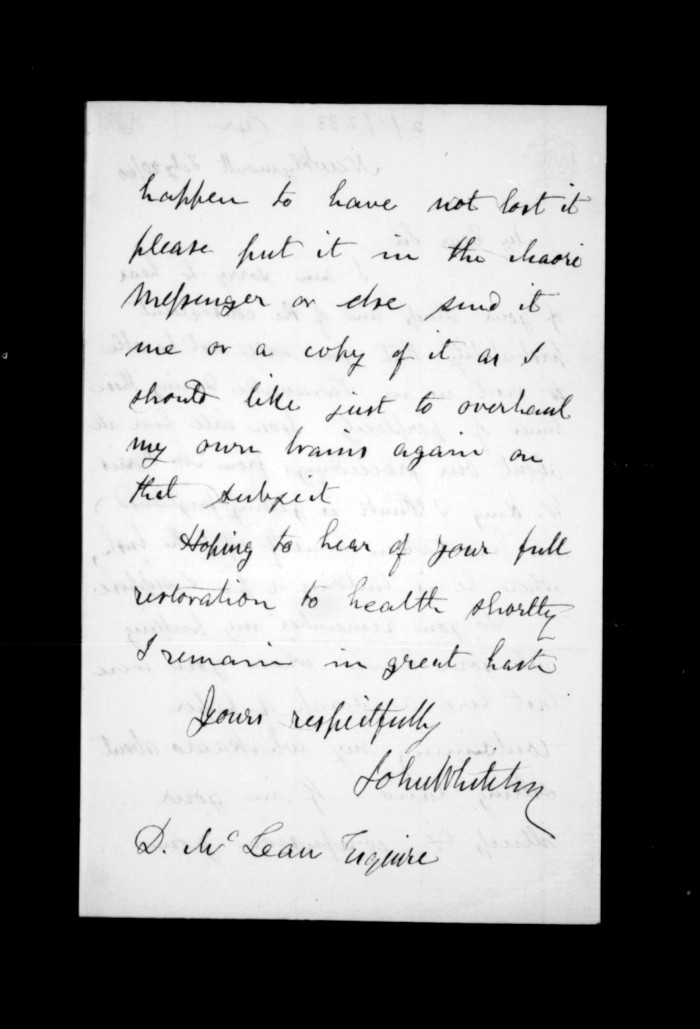 happen to have not lost it
please put it in the Maori
Messenger or else send it
me or a copy of it as I
should like just to overhaul
my own brains again on
that subject
Hoping to hear of your full
restoration to health shortly
I remain in great haste
Yours respectfully
John Whiteley
D. McLean Esquire